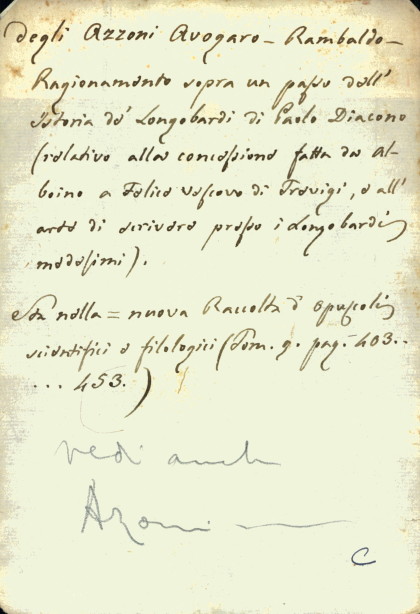 Degli Azzoni Avogaro - Rambaldo -
Ragionamento sopra un passo dell'
Istoria de' Longobardi di Paolo Diacono
(relativo alla concessione fatta da Al-
boino a Felice vescovo di Trevigi, e all'
arte di scrivere presso i Longobardi
medesimi).
Sta nella = nuova Raccolta d' opuscoli
scientifici e filologici (Tom. 9. pag. 403..
... 453.)
vedi anche
Azoni —
C